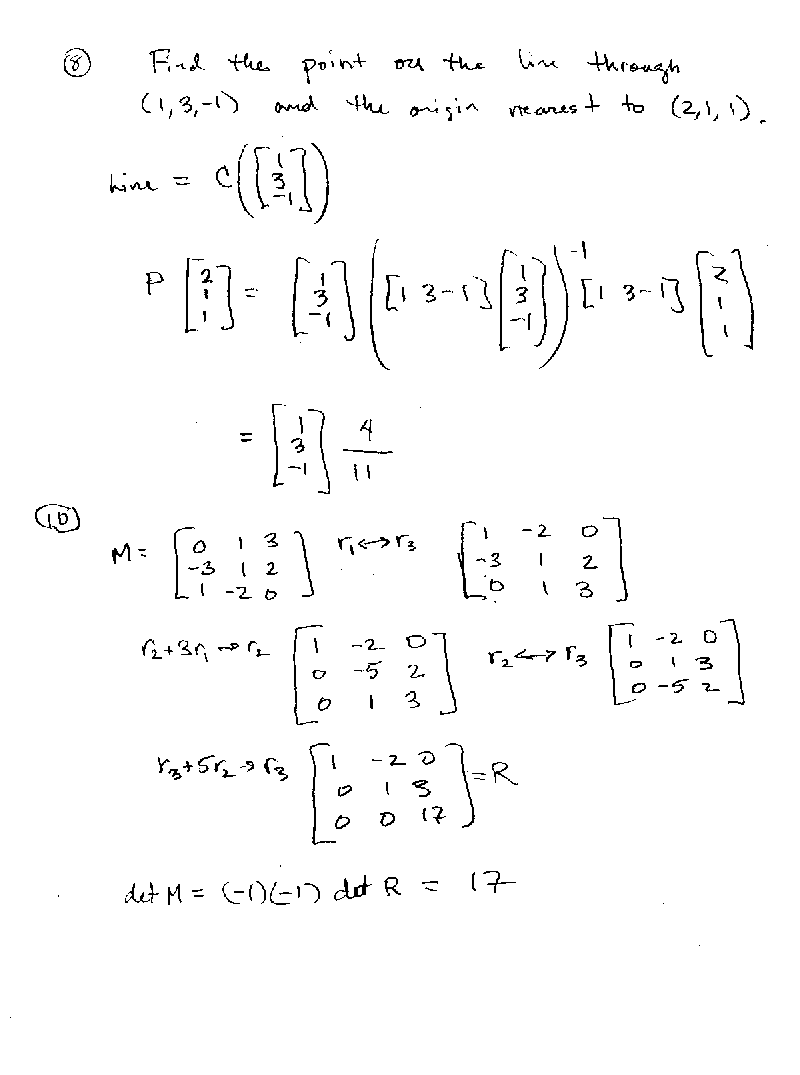 ⑧ Find the point on the line through
(1,3,-1) and the origin nearest to (2,1,1).
Line = C([1 3 -1])
P [2 1 1] = [1 3 -1] ([1 3 -1] [1 3 -1])^-1 [1 3 -1] [2 1 1]
= [1 3 -1] 4/11
⑩
M = [0 1 3; -3 1 2; 1 -2 0] r₁↔r₃ [1 -2 0; -3 1 2; 0 1 3]
r₂+3r₁→r₂ [1 -2 0; 0 -5 2; 0 1 3] r₂↔r₃ [1 -2 0; 0 1 3; 0 -5 2]
r₃+5r₂→r₃ [1 -2 0; 0 1 3; 0 0 17] = R
det M = (-1)(-1) det R = 17